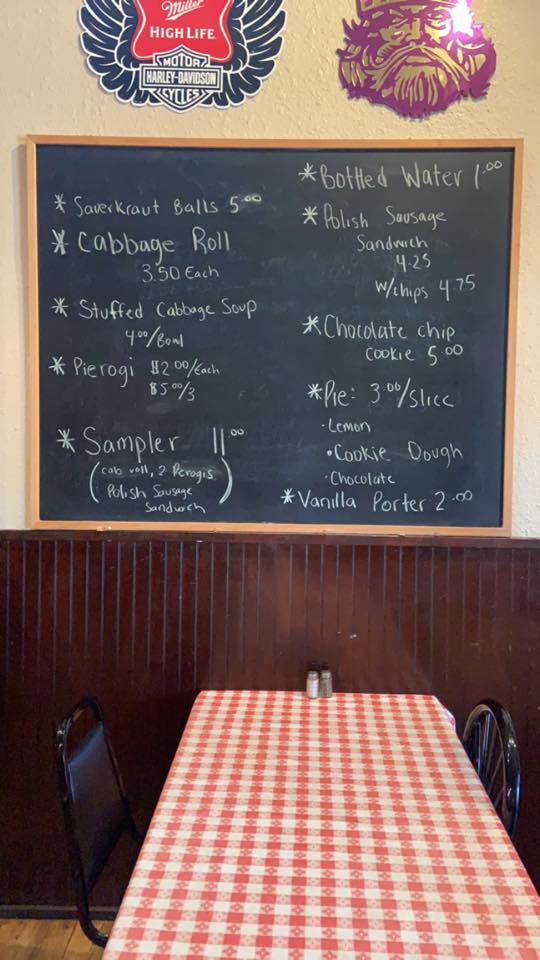 Miller
HIGH LIFE
MOTOR
HARLEY-DAVIDSON
CYCLES
* Sauerkraut Balls 5.00
* Cabbage Roll
3.50 Each
* Stuffed Cabbage Soup
4.00/Bowl
* Pierogi $2.00/each
$5.00/3
* Sampler 11.00
(cab roll, 2 Perogis
Polish Sausage
Sandwich)
* Bottled Water 1.00
* Polish Sausage
Sandwich
4.25
w/chips 4.75
* Chocolate chip
Cookie 5.00
* Pie: 3.00/slice
• Lemon
• Cookie Dough
• Chocolate
* Vanilla Porter 2.00